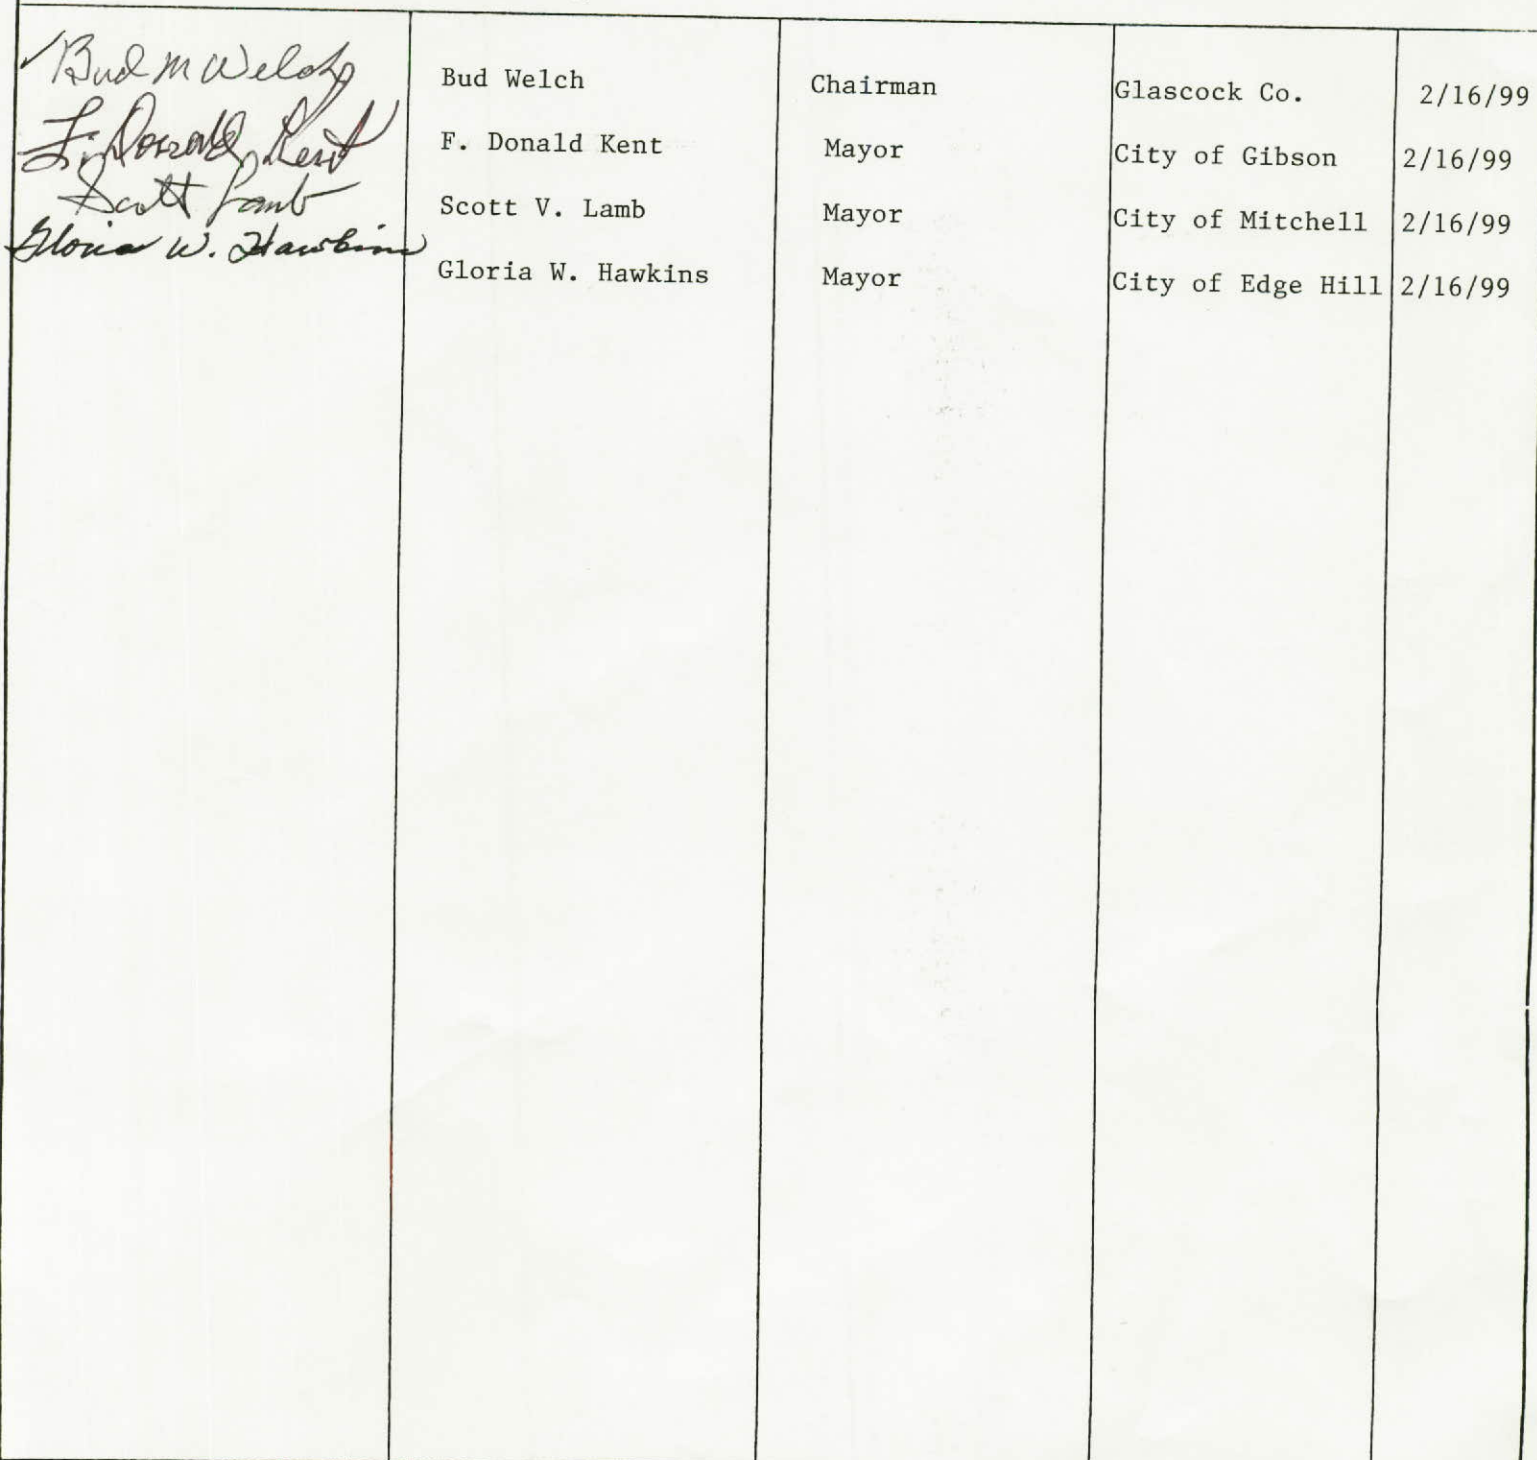 Bud M Welch Bud Welch Chairman Glascock Co. 2/16/99
F. Donald Kent F. Donald Kent Mayor City of Gibson 2/16/99
Scott Lamb Scott V. Lamb Mayor City of Mitchell 2/16/99
Gloria W. Hawkins Gloria W. Hawkins Mayor City of Edge Hill 2/16/99